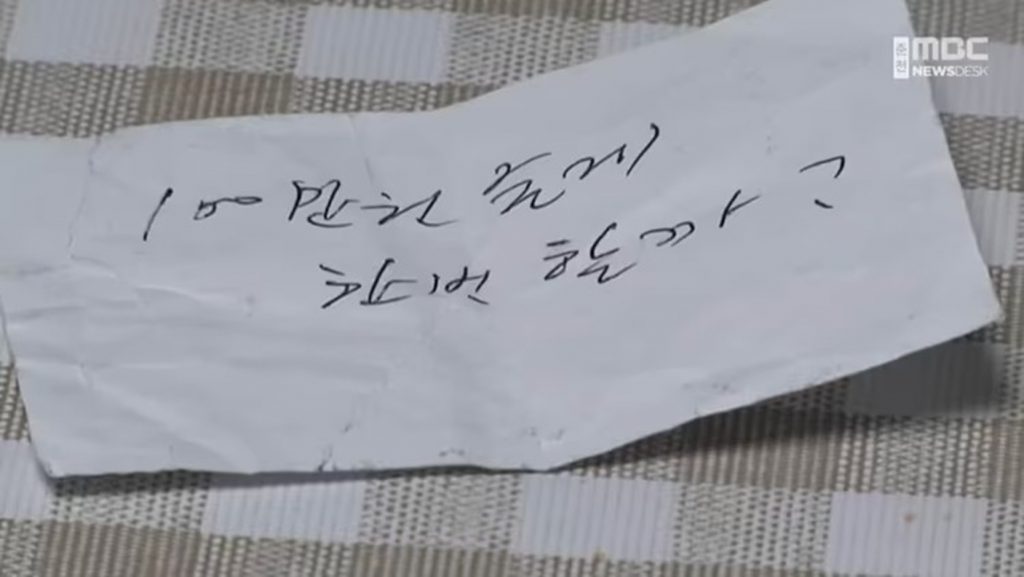 전주 MBC
NEWSDESK
100만원 줄게
한번 할까?